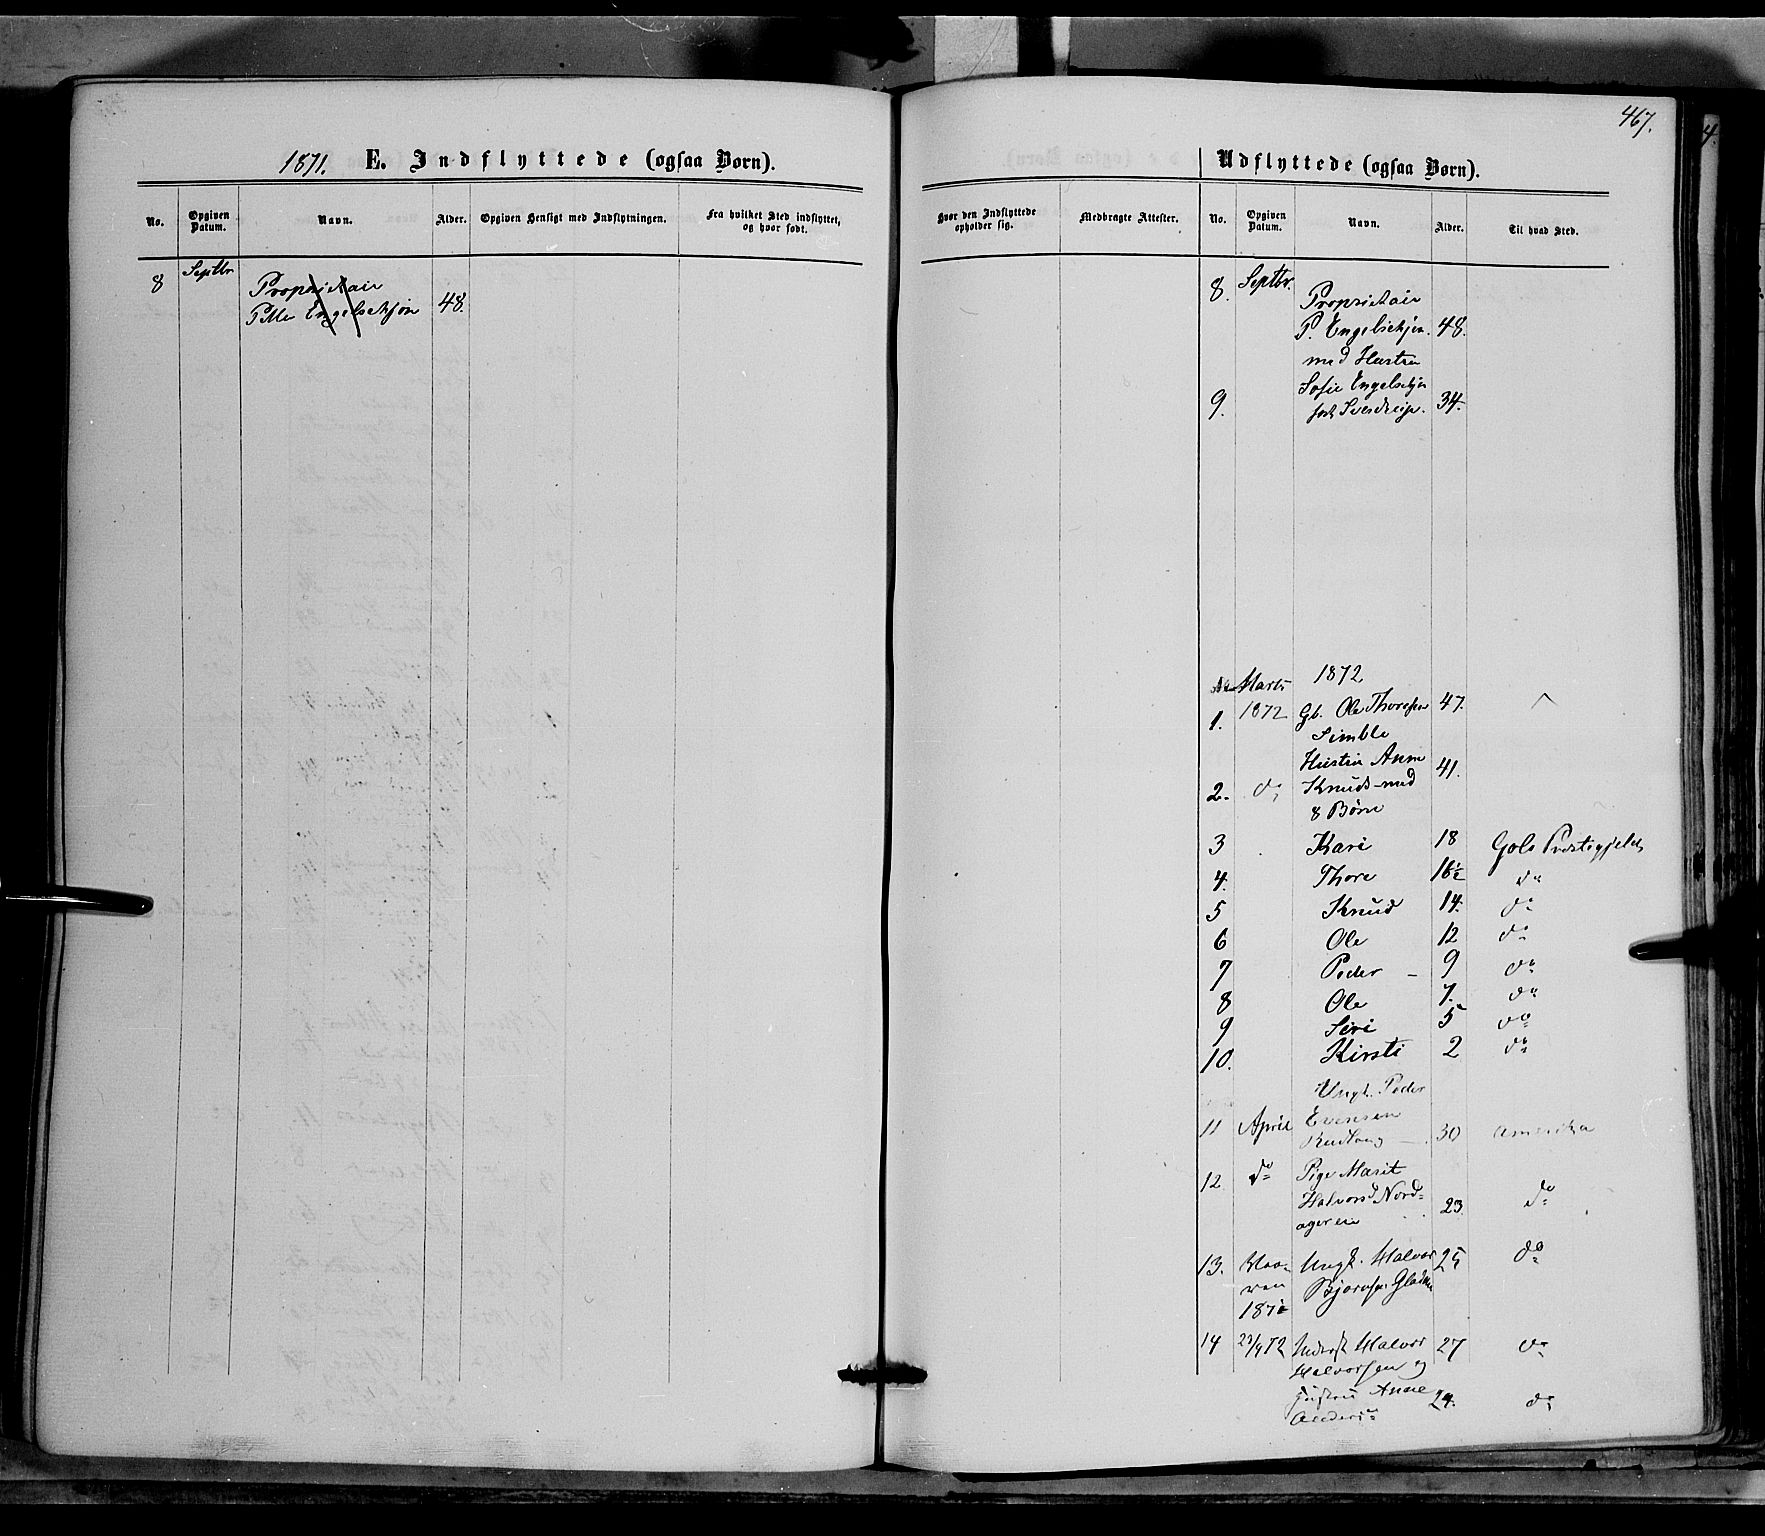 467.
1871. E. Indflyttede (ogsaa Børn).
No. Opgiven Datum. Navn. Alder. Opgiven Hensigt med Indflytningen. Fra hvilket Sted indflyttet, og hvor født.
8 Septbr Proprietair
Engelsckjøn 48.
Udflyttede (ogsaa Børn).
Hvor den Indflyttede opholder sig. Medbragte Attester. No. Opgiven Datum. Navn. Alder. Til hvad Sted.
8. Septbr. Proprietair
P. Engelsckjøn. 48.
med Hustru
9. Sofie Engelsckjøn
født Sverdrup. 34.
Marts 1872
1. 1872 Gb. Ole Thoresen 47.
Simble
Hustru Anne 41.
2. do Knuds med
8 Børn
3 Kari 18 Gols Præstegjeld
4. Thore 16½ do
5 Knud 14. do
6 Ole 12 do
7 Peder - 9 do
8 Ole 7. do
9 Siri 5 do
10. Kirsti 2 do
Ungk. Peder
11 April Evensen
30 Amerika
12 do Pige Marit
Halvorsd Nord=
ageren 23. do
13. Vaa= Ungk. Halvor 25 do
ren Bjørnsen
187
14 23/9 72 Halvor 27 do
Halvorsen og
Hustru Anne 24. do
Anders